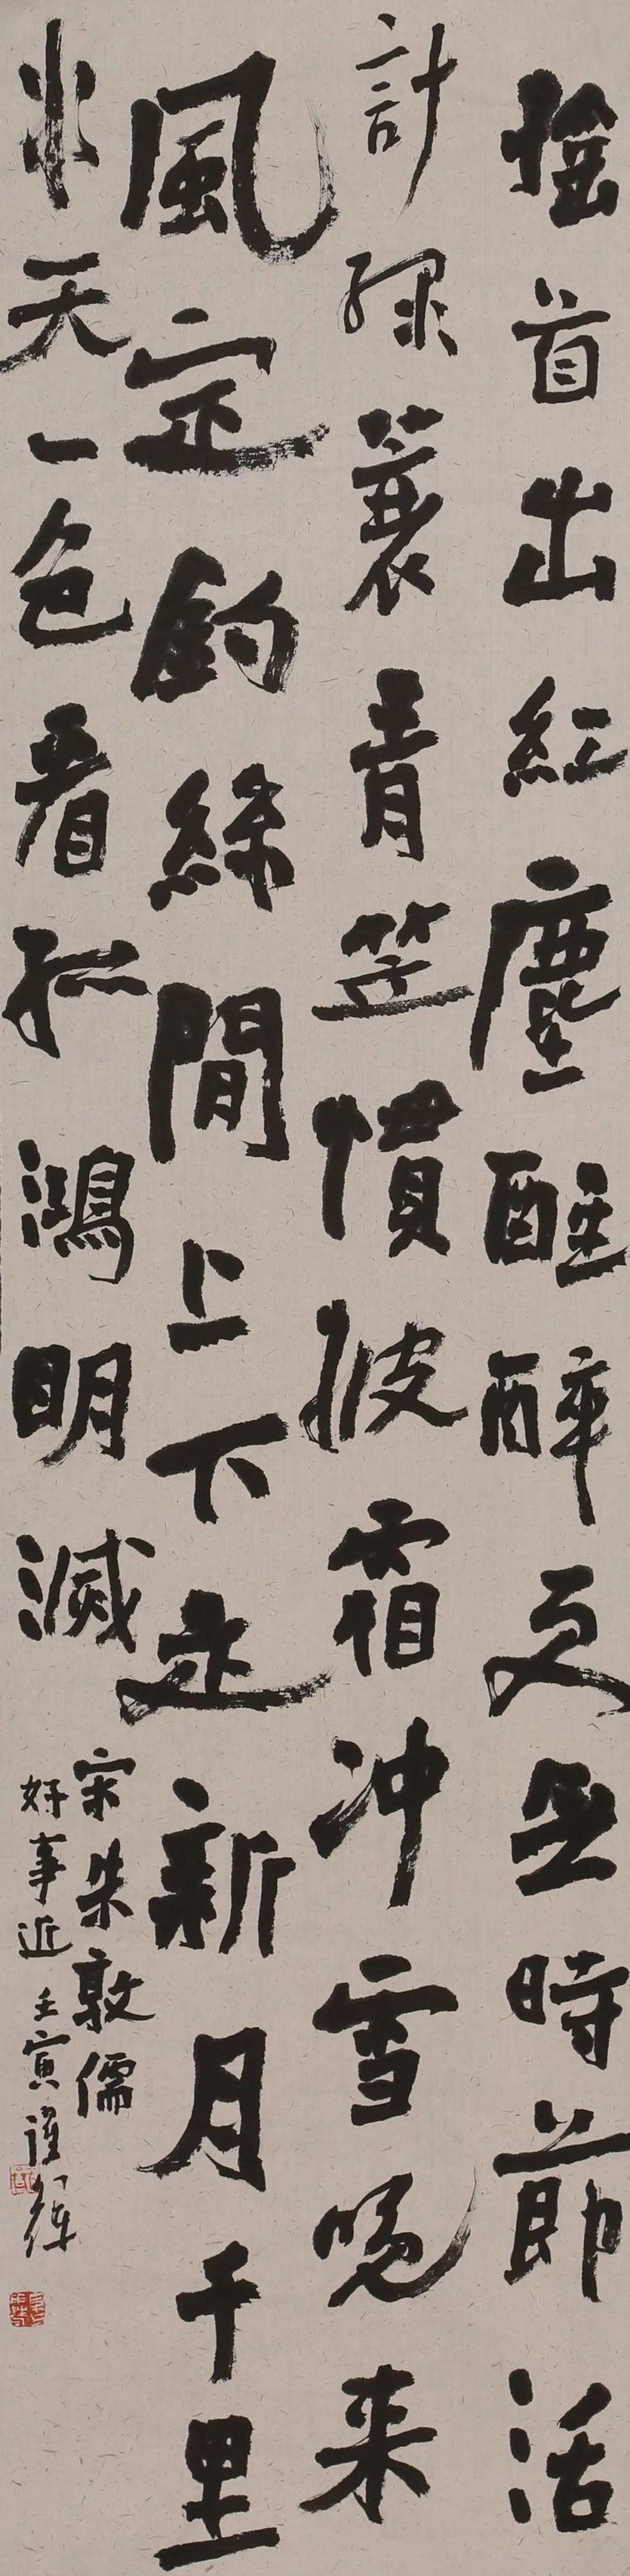 搖首出紅塵醒醉更無時節活
計綠蓑青笠慣披霜冲雪晚来
風定釣絲閒上下是新月千里
水天一色看孤鴻明滅
宋朱敦儒
好事近壬寅謹輝